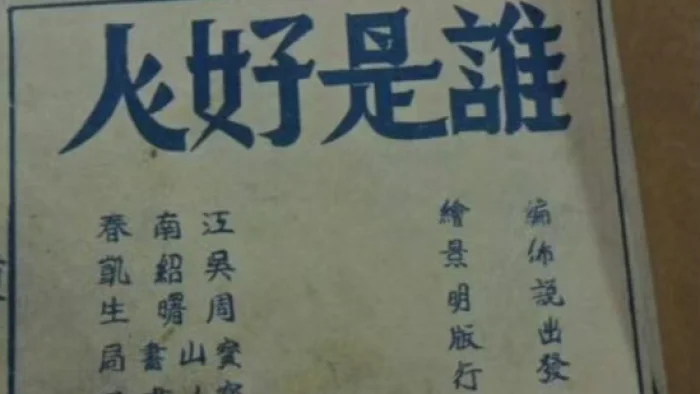 誰是好人
編繪 江南春
佈景 吳紹凱
說明 周曙生
出版 寶山書局
發行